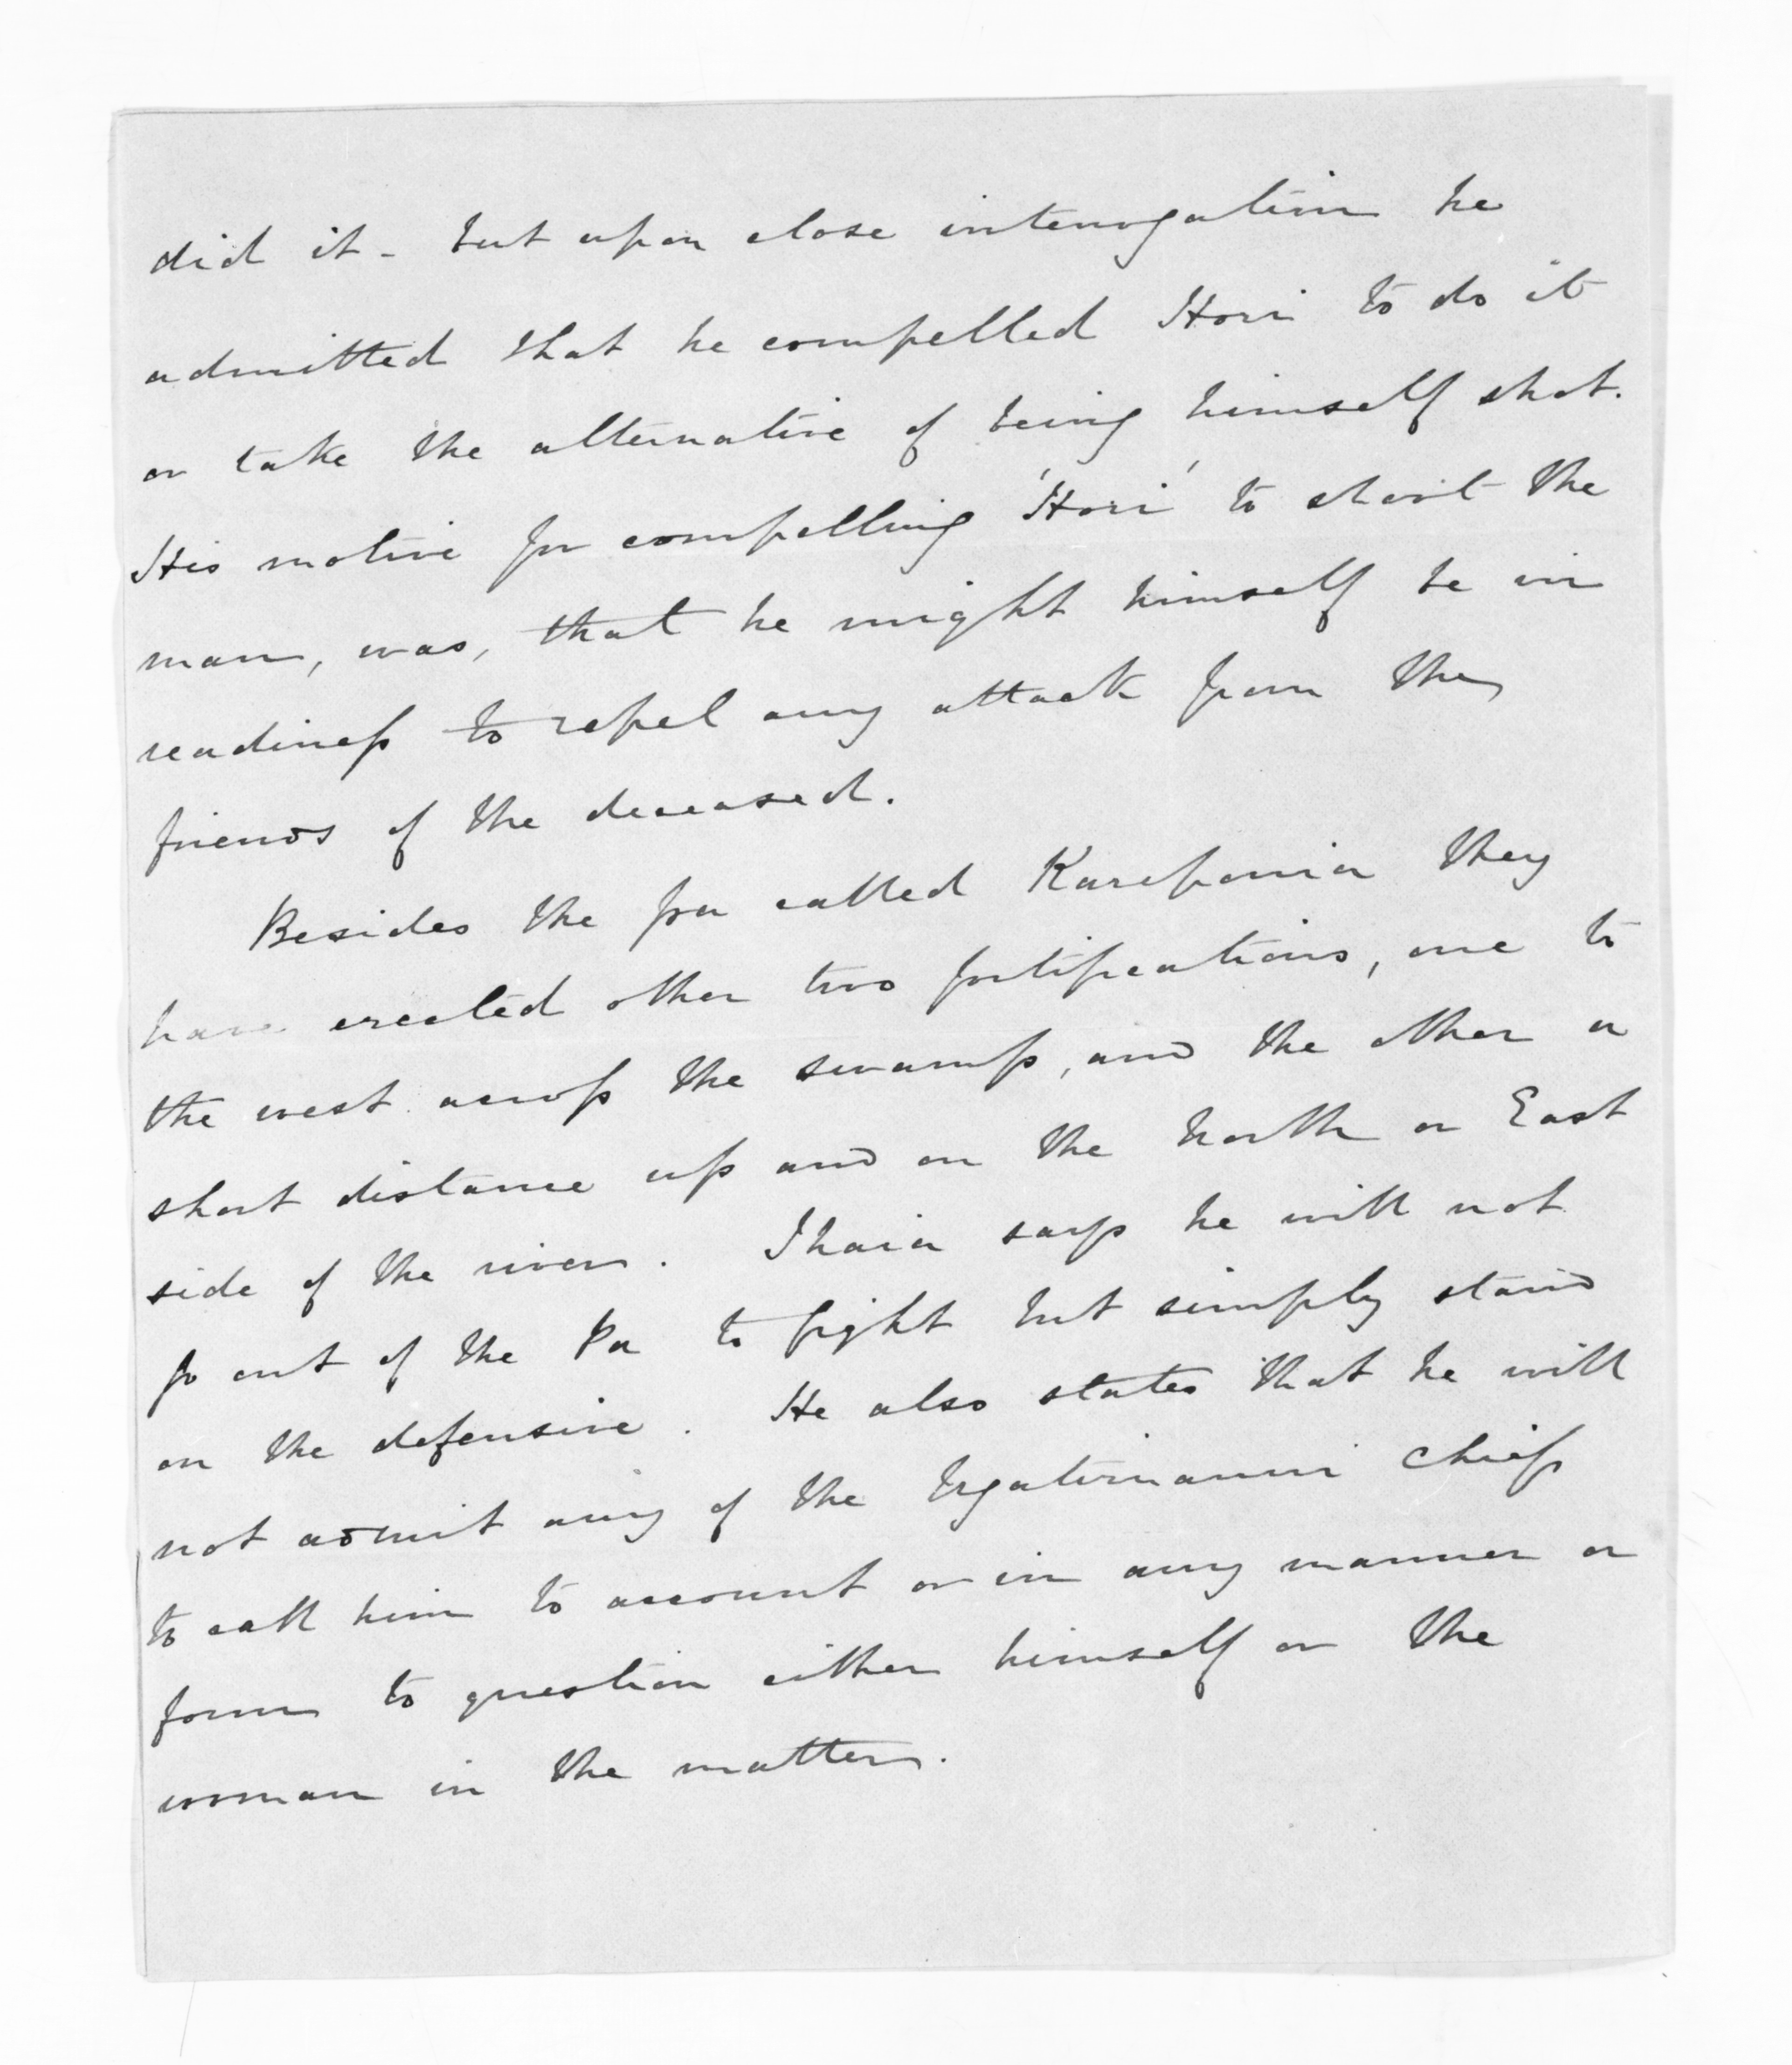 did it - but upon close interrogation he
admitted that he compelled Hori to do it
or take the alternative of being himself shot.
His motive for compelling 'Hori' to shoot the
man, was, that he might himself be in
readiness to repel any attack from the
friends of the deceased.
Besides the pa called Kareponia they
have erected other two fortifications, one to
the west across the swamp, and the other a
short distance up and on the North or East
side of the river. Ihaia says he will not
go out of the Pa to fight but simply stand
on the defensive. He also states that he will
not admit any of the Ngatimaniu chiefs
to call him to account or in any manner or
form to question either himself or the
woman in the matter.